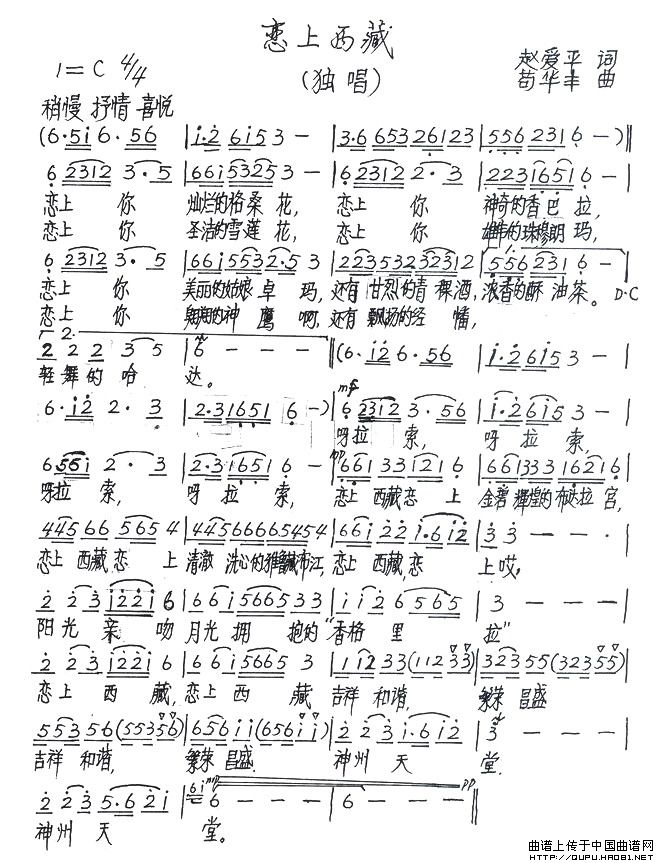 恋上西藏
1=C 4/4 (独唱) 赵爱平 词
苟华丰 曲
稍慢 抒情 喜悦
(6·5i 6·56 | i·2 6i53 - | 3·6 653 26123 | 556 2316 - )‖
6 2312 3·5 | 66i53253 - | 6 2312 2·3 | 22316516 - |
恋上 你 灿烂的格桑花, 恋上 你 神奇的香巴拉,
恋上 你 圣洁的雪莲花, 恋上 你 雄伟的珠穆朗玛,
6 2312 3·5 | 66i5532·5 3 | 223553232312 | 556 2316 - D·C
恋上 你 美丽的姑娘卓玛, 还有甘烈的青稞酒, 浓香的酥油茶。
恋上 你 翱翔的神鹰啊, 还有飘扬的经幡,
2.
2 2 2 3 5 | 6 - - - | (6·i2 6·56 | i·2 6i53 - |
轻舞的哈 达。
6·i2 2·3 | 2·31651 6 - ) | 6 2312 3·56 | i·2 6i53 - |
mf
呀拉 索, 呀 拉 索,
6 55i 2·3 | 2·3 1651 6 - | 66i 33 i21 6 | 66i333 i621 6 |
呀拉 索, 呀 拉 索, 恋上 西藏恋 上 金碧辉煌的布达拉宫,
pp
445566 565 4 | 445666665454 | 66i 22 i·6i2 | 3 3 - - · |
恋上 西藏恋 上 清澈 洗心的雅鲁藏布江, 恋上 西藏,恋 上哎。
2 2 3 i22i 6 | 6 6 i5665 33 | i i 2 6 565 | 3 - - - |
阳光 亲 吻 月光 拥 抱的“香格 里 拉”
2 2 3 i22i 6 | 6 6 i5665 3 | 1 i2 33 (112 33) | 323 55 (323 55) |
恋上 西 藏, 恋上 西 藏 吉祥 和谐, 繁荣 昌盛
553 56 (553 56) | 656 ii (656 ii) | 2 2 3 i·6 i2 | 3 - - - |
吉祥 和谐, 繁荣 昌盛. 神州 天 堂.
2 2 3 5·6 2i | 6 - - - | 6 - - - ‖
mp pp
神州 天 堂。
曲谱上传于中国曲谱网
HTTP://QUPU.HAO81.NET